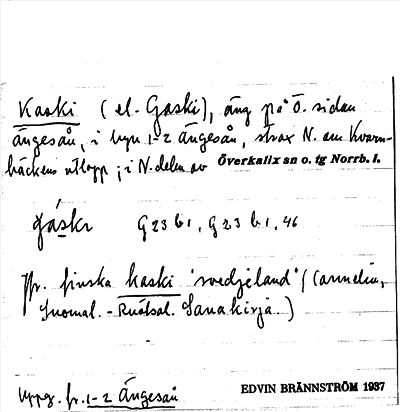 Kaski (el. Gaski), äng på Ö. sidan
ängesån, i byn 1-2 Ängesån, strax N. om Kvarn-
bäckens utlopp ; i N. delen av Överkalix sn o. tg Norrb. l.
gáskı G23 b1, G23 b1, 46
Jfr. finska kaski 'svedjeland' (Cannelin,
Suomal. - Ruotsal. Sanakirja.)
Uppg. fr. 1-2 Ängesån EDVIN BRÄNNSTRÖM 1937